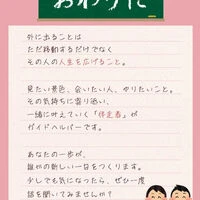 おわりに
外に出ることは
ただ移動するだけでなく
その人の人生を広げること。
見たい景色、会いたい人、やりたいこと。
その気持ちに寄り添い、
一緒に叶えていく「伴走者」が
ガイドヘルパーです。
あなたの一歩が、
誰かの新しい一日をつくります。
少しでも気になったら、ぜひ一度
話を聞いてみませんか？